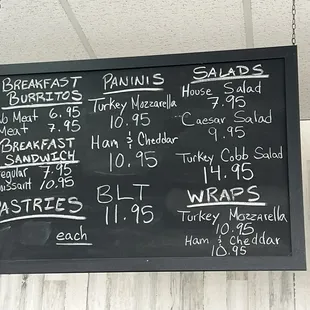 BREAKFAST
BURRITOS
Meat 6.95
Meat 7.95
BREAKFAST
SANDWICH
7.95
10.95
each
PANINIS
Turkey Mozzarella
10.95
Ham & Cheddar
10.95
BLT
11.95
SALADS
House Salad
7.95
Caesar Salad
9.95
Turkey Cobb Salad
14.95
WRAPS
Turkey Mozzarella
10.95
Ham & Cheddar
10.95